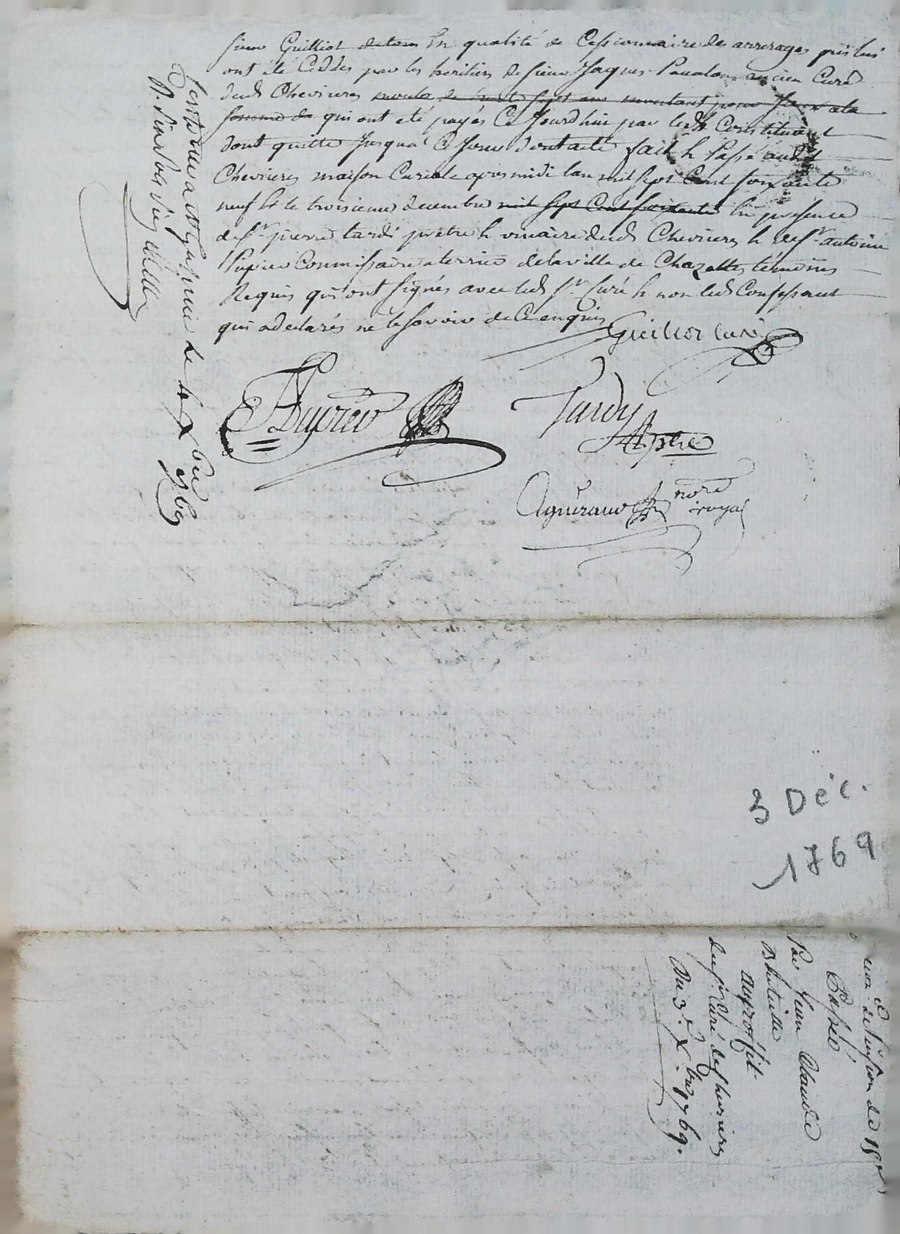 sieur Guilliot de tous En qualité de Cessionnaire des arrerages qui lui
ont été Cédés par les heritiers de sieur Jaques ancien Curé
dud Chevrieres
somme de qui ont été payés Ce Jourdhui par led Constituant
dont quitte Jusqua Ce Jour dont acte fait & Passé aud
Chevrieres maison Curiale apres midi lan mil sept Cent soixante
neuf & le troisieme decembre mil sept Cent soixante En presence
de Sr pierre tardi pretre & vicaire dud Chevrieres & de Sr antoine
Pupier Commissaire a terrier de la ville de Chazelles témoins
Requis qui ont signés avec led Sr Curé & non led Confessant
qui a declarés ne le savoir de Ce enquis
Guilliot Curé
Pupier
Tardy
ptre
Agniraud nore
royal
le 4 Xbre 1769
3 Déc.
1769
de pension de 15
Passé
Par Jean Claude
au proffit
du sr Curé de Chevrieres
Du 3e Xbre 1769.